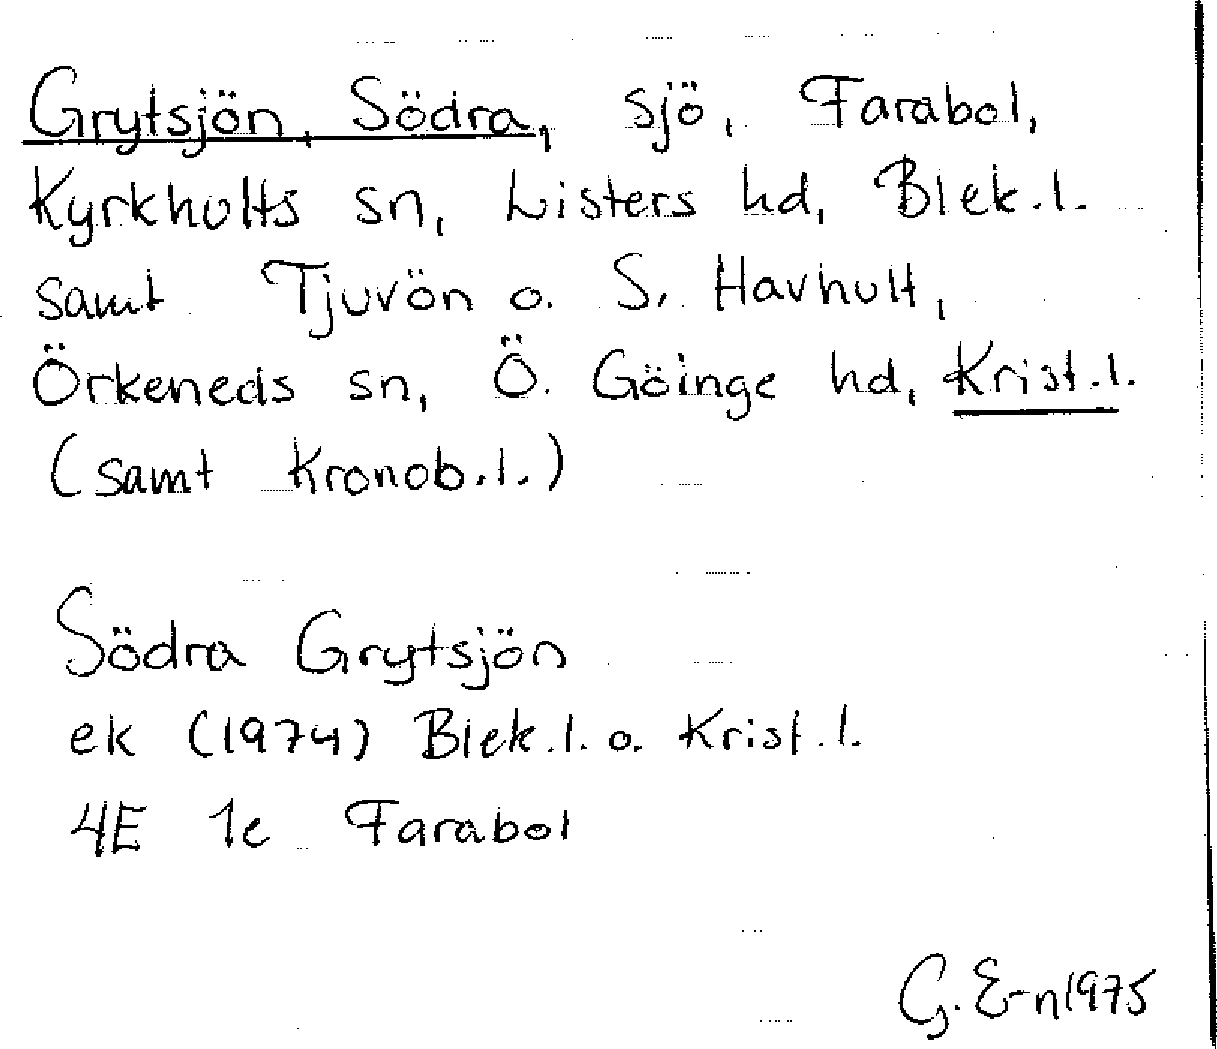 Grytsjön, Södra, sjö, Farabol,
Kyrkhults sn, Listers hd, Blek.l.
samt Tjuvön o. S. Havhult,
Örkeneds sn, Ö. Göinge hd, Krist.l.
(samt Kronob.l.)
Södra Grytsjön
ek (1974) Blek.l. o. Krist.l.
4E 1c Farabol
G. E-n 1975